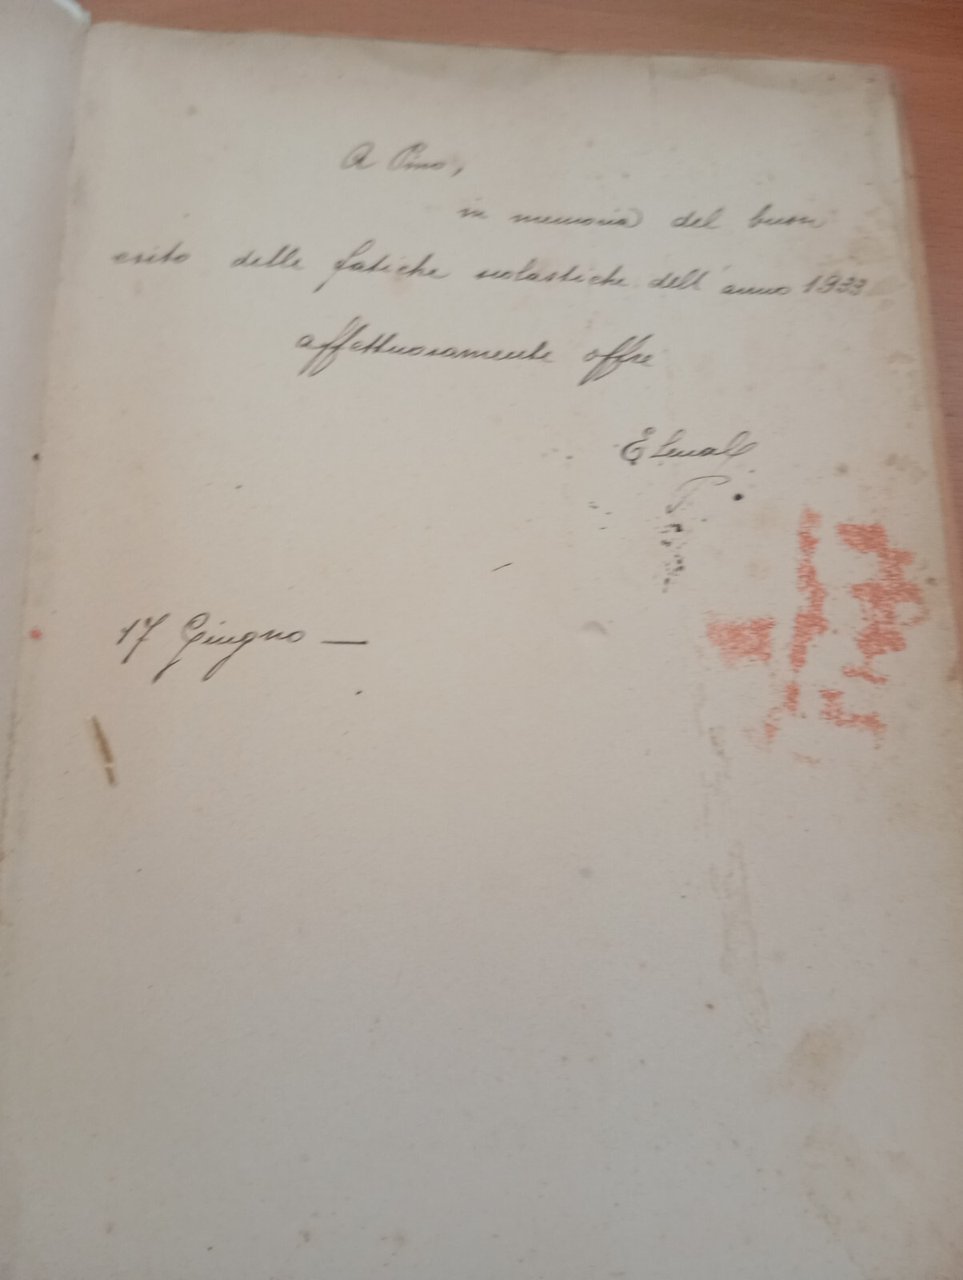 A Pino,
in memoria del buon
esito delle fatiche scolastiche dell'anno 1933
affettuosamente offre
17 Giugno —